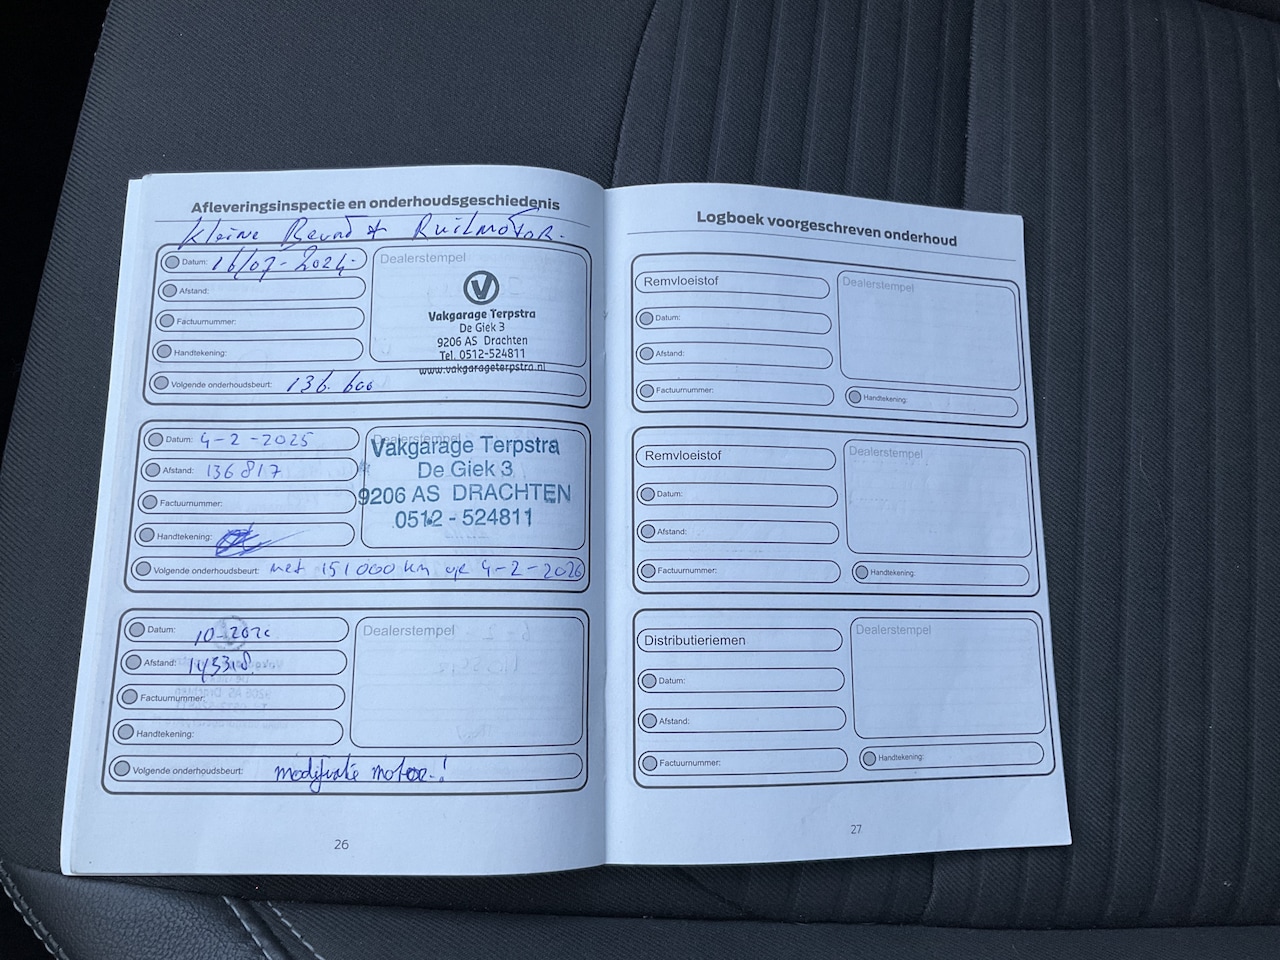 Afleveringsinspectie en onderhoudsgeschiedenis
Kleine Beurt + Ruilmotor.
Datum: 16/07-2024.
Dealerstempel
Afstand:
Factuurnummer:
Handtekening:
Vakgarage Terpstra
De Giek 3
9206 AS Drachten
Tel. 0512-524811
www.vakgarageterpstra.nl
Volgende onderhoudsbeurt: 136.600
Datum: 4-2-2025
Afstand: 136817
Factuurnummer:
Handtekening:
Dealerstempel
Vakgarage Terpstra
De Giek 3
9206 AS DRACHTEN
0512 - 524811
Volgende onderhoudsbeurt: met 151000 km op 4-2-2026
Datum:
Afstand:
Factuurnummer:
Handtekening:
Dealerstempel
Volgende onderhoudsbeurt: modificatie motor.!
26
Logboek voorgeschreven onderhoud
Remvloeistof
Datum:
Afstand:
Factuurnummer:
Dealerstempel
Handtekening:
Remvloeistof
Datum:
Afstand:
Factuurnummer:
Dealerstempel
Handtekening:
Distributieriemen
Datum:
Afstand:
Factuurnummer:
Dealerstempel
Handtekening:
27